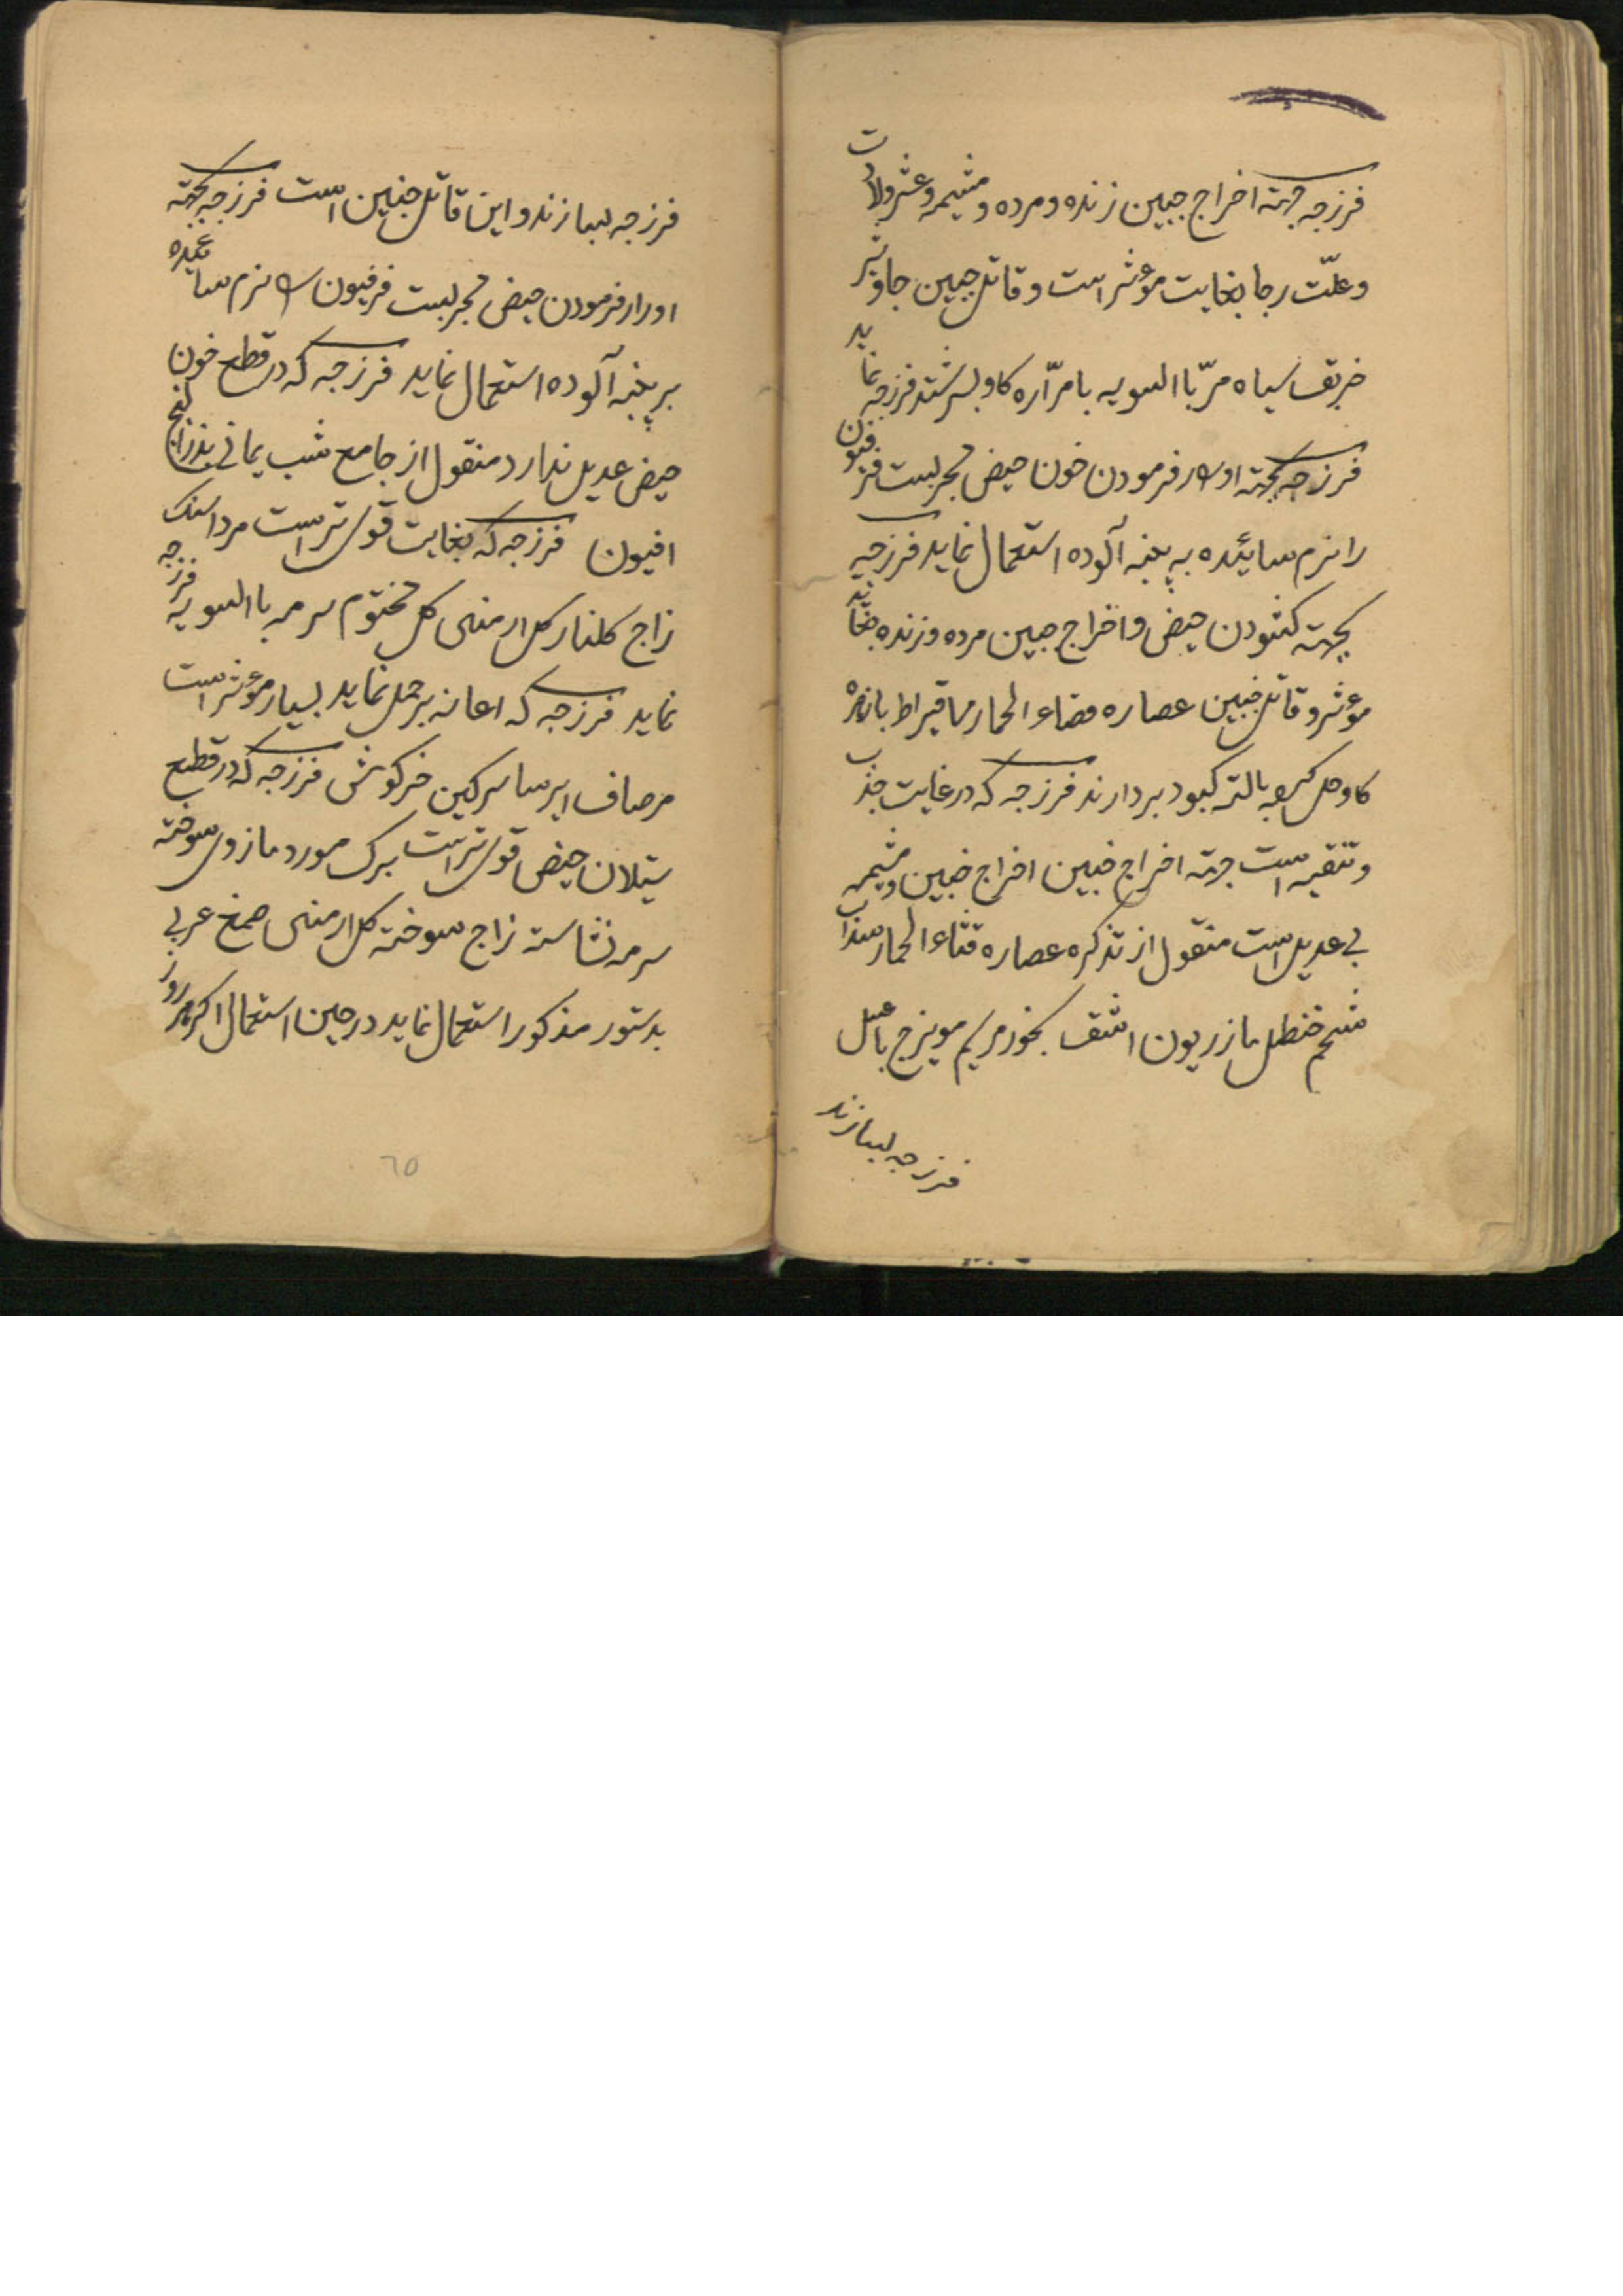 فرزجه جهته اخراج جنین زنده و مرده و مشیمه و عشر ولادت
و علّت رجا بغایت موءثر است و قاتل جنین جاوشیر
خربق سیاه مرّ با السویه با مرّاره کاو بسرشتد فرزجه نماید
فرزجه بجهته ادرار فرمودن خون حیض مجربست فرفیون
را نرم سائیده به پنبه آلوده استعمال نماید فرزجه
بجهته کشودن حیض و اخراج جنین مرده و زنده بغایت
موءثر و قاتل جنین عصاره قثاء الحمار قیراط با زهره
کاو حل کرده بالته کبود بردارند فرزجه که در غایت جذب
و تنقیه است جهته اخراج جنین اخراج جنین و مشیمه
بی عدیل است منقول از تذکره عصاره قثاء الحمار سنداب
شحم حنظل مازریون اشق بخور مریم مویزج با عسل
فرزجه بسازند
فرزجه بسازند و این قاتل جنین است فرزجه بجهته
ادرار فرمودن حیض مجربست فرفیون را نرم سائیده
بر پنبه آلوده استعمال نماید فرزجه که در قطع خون
حیض عدیل ندارد منقول از جامع شب یمانی بذرالبنج
افیون فرزجه که بغایت قوی تر است مرداسنک
زاج کلنار کل ارمنی کل مختوم سرمه با السویه فرزجه
نماید فرزجه که اعانه بر حمل نماید بسیار موءثر است
مرصاف ایرسا سرکین خرکوش فرزجه که در قطع
سیلان حیض قوی تر است برک مورد مازوی سوخته
سرمه نشاسته زاج سوخته کل ارمنی صمغ عربی
بدستور مذکور استعمال نماید در حین استعمال اکر هر روز
٦٥